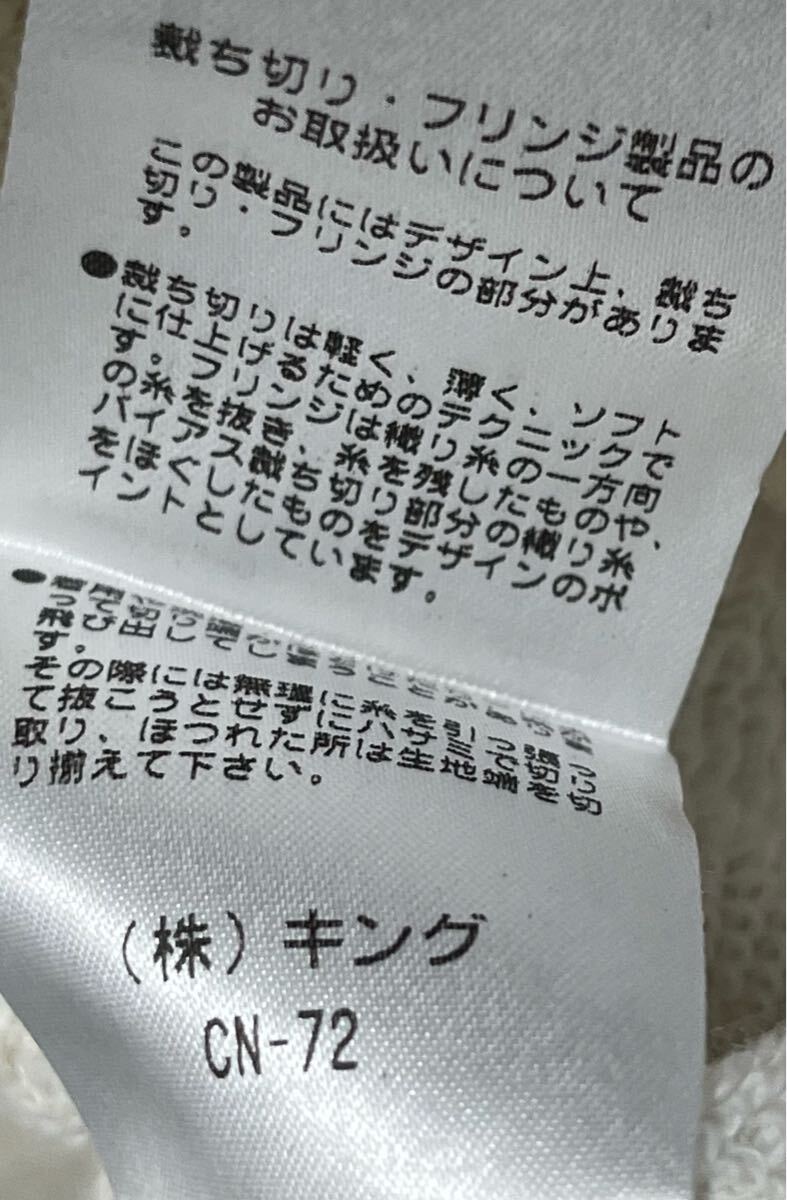 裁ち切り・フリンジ製品の
お取扱いについて
この製品にはデザイン上、裁ち
切り・フリンジの部分がありま
す。
●裁ち切りは軽く、薄く、ソフト
に仕上げるためのテクニックで
す。フリンジは織り糸の一方向
の糸を抜き、糸を残したものや、
バイアス裁ち切り部分の織り糸
をほぐしたものをデザインのポ
イントとしています。
●着用
っ飛び出し
す。
その際には無理に糸を引っ張っ
て抜こうとせずにハサミで切り
取り、ほつれた所は生地端を切
り揃えて下さい。
(株)キング
CN-72